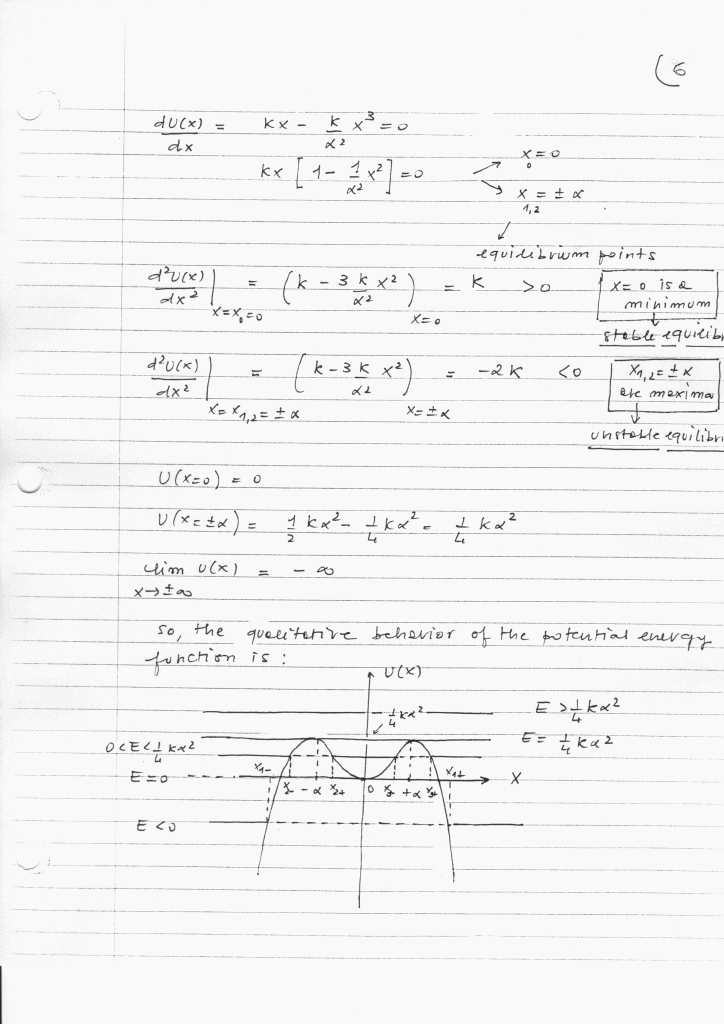 (6
dU(x)/dx = kx - k/α² x³ = 0
kx [1 - 1/α² x²] = 0 → x₀ = 0
→ x₁,₂ = ± α
equilibrium points
d²U(x)/dx² |x=x₀=0 = (k - 3 k/α² x²)x=0 = k > 0 x=0 is a minimum
stable equilibri
d²U(x)/dx² |x=x₁,₂=±α = (k - 3 k/α² x²)x=±α = -2k < 0 x₁,₂=±α are maxima
unstable equilibri
U(x=0) = 0
U(x=±α) = 1/2 kα² - 1/4 kα² = 1/4 kα²
lim U(x) = - ∞
x→±∞
so, the qualitative behavior of the potential energy
function is :
U(x)
1/4 kα² E > 1/4 kα²
0<E<1/4 kα² E = 1/4 kα²
E=0 x₁₋ x₁₊ x
x₂₋ -α x₂₊ 0 x₃₋ +α x₃₊
E<0